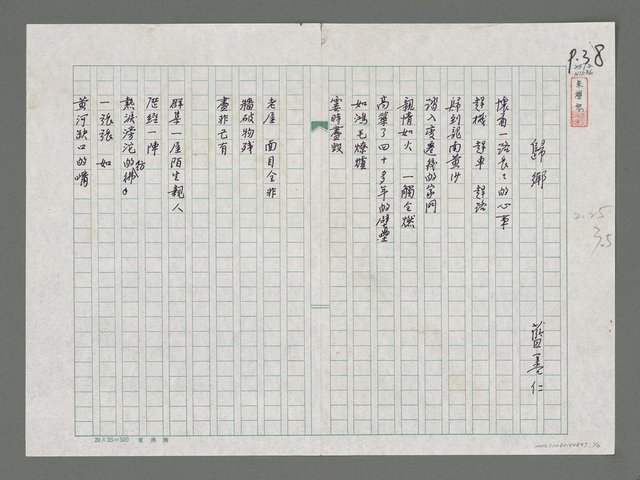 P.38
歸鄉
藍善仁
懷着一路長長的心事
趕機 趕車 趕路
歸到龍南黃沙
踏入變遷後的家門
親情如火 一觸全燃
高築了四十多年的壁壘
如鴻毛燎爐
霎時盡毀
老屋 面目全非
牆破物殘
盡非己有
群集一屋陌生親人
歷經一陣
熱淚滂沱的
一張張 如
黃河缺口的嘴
20×25=500
2.25